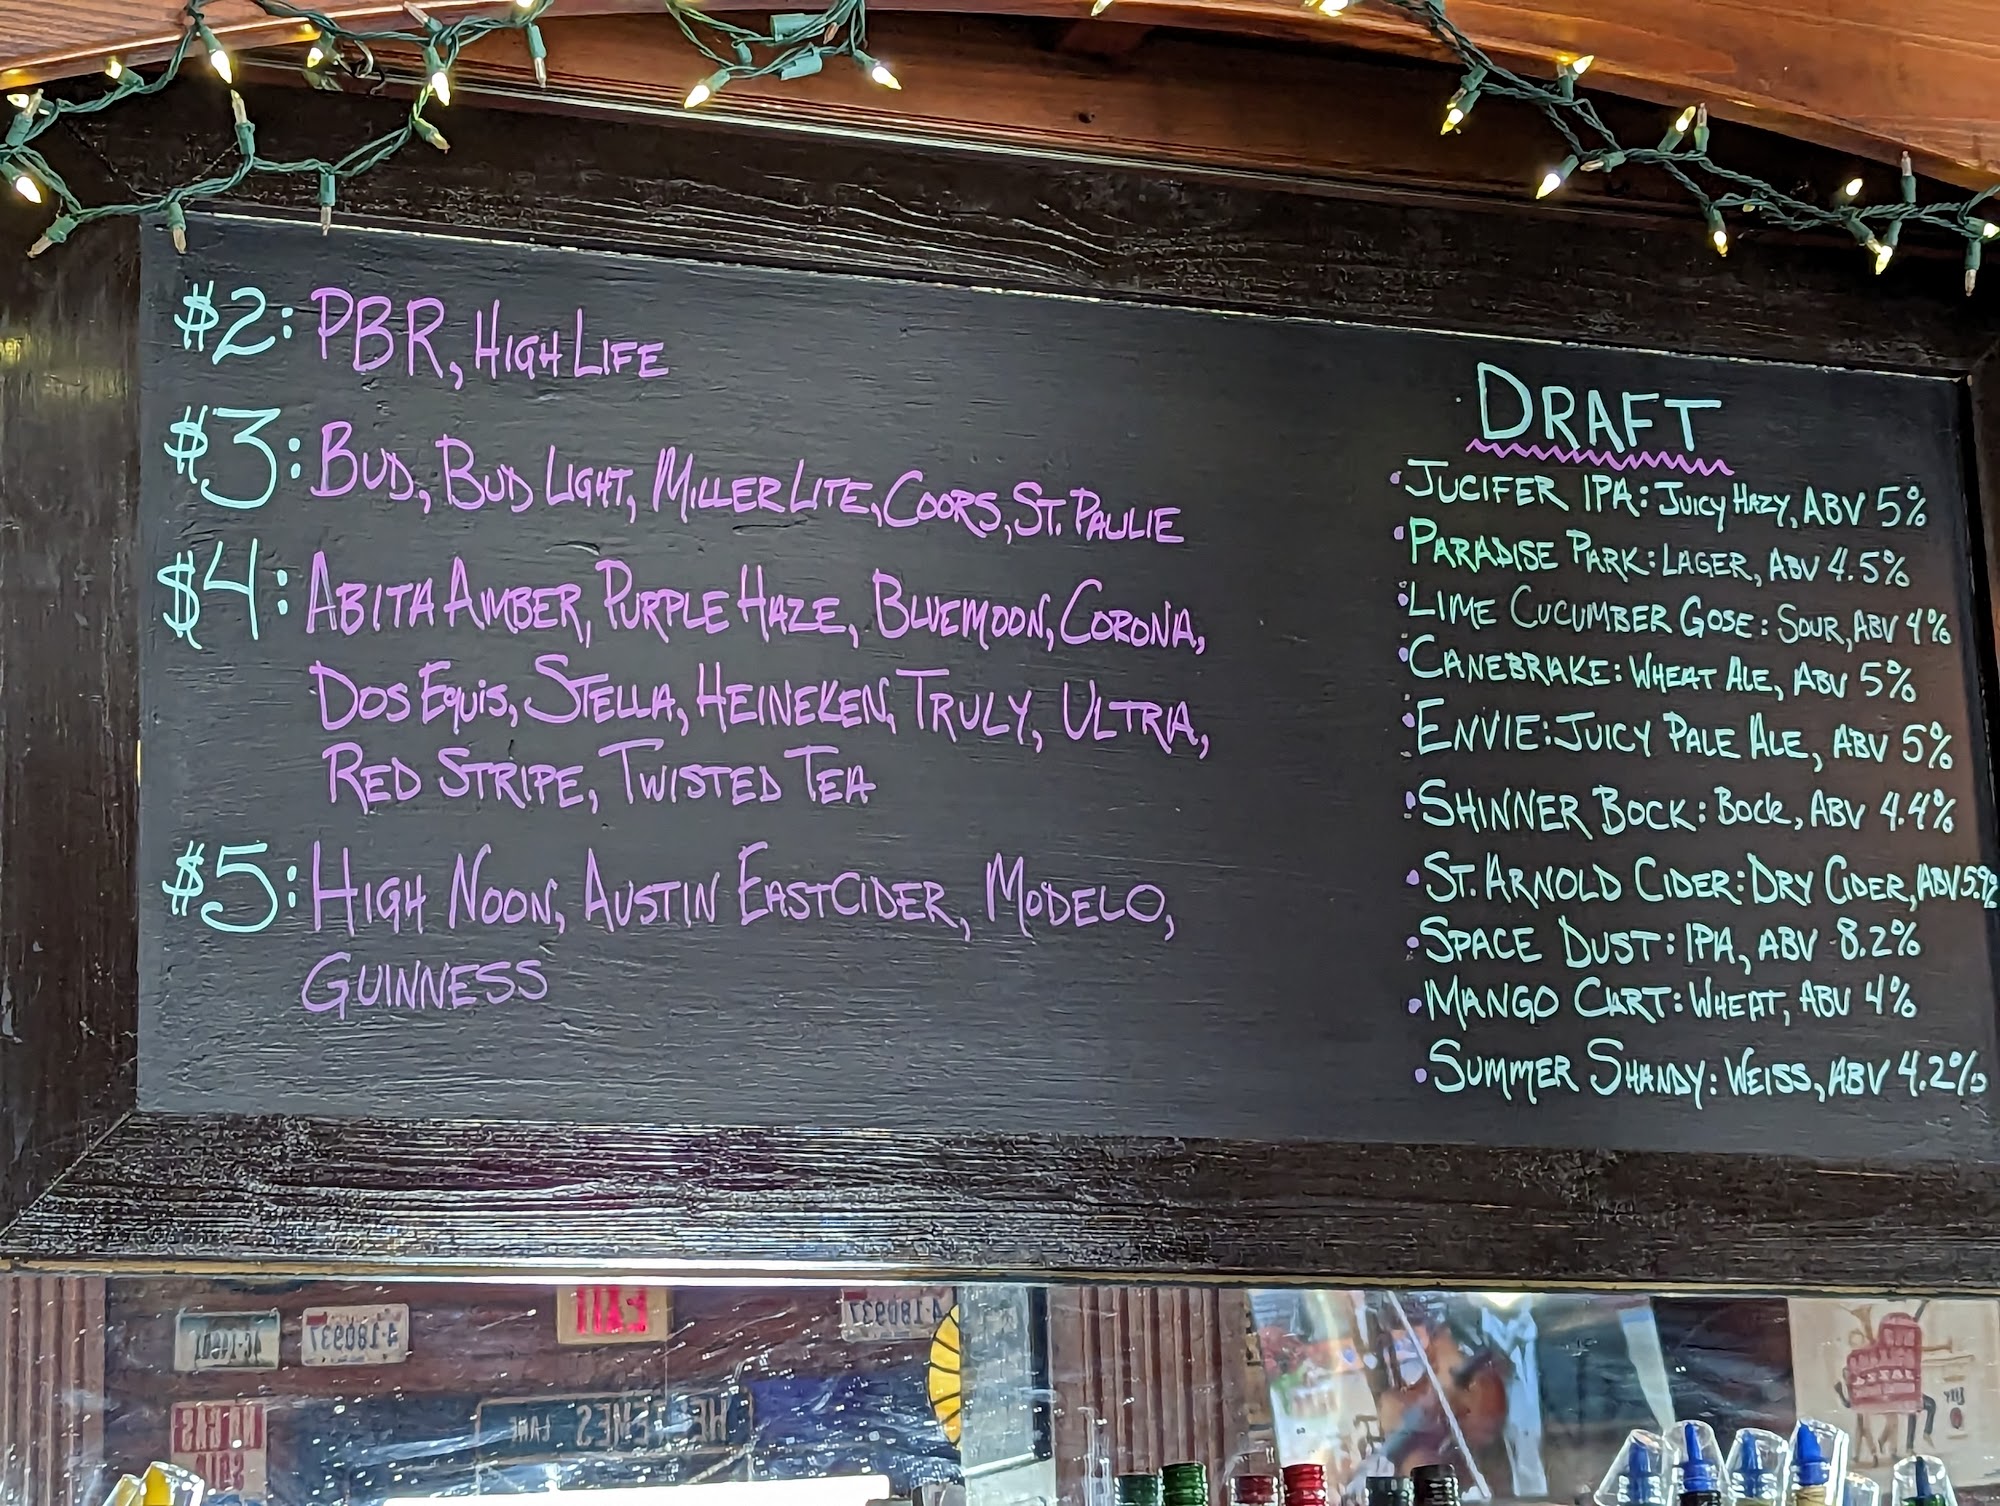 $2: PBR, HIGH LIFE
$3: BUD, BUD LIGHT, MILLER LITE, COORS, ST. PAULIE
$4: ABITA AMBER, PURPLE HAZE, BLUEMOON, CORONA,
DOS EQUIS, STELLA, HEINEKEN, TRULY, ULTRA,
RED STRIPE, TWISTED TEA
$5: HIGH NOON, AUSTIN EASTCIDER, MODELO,
GUINNESS
DRAFT
• JUCIFER IPA: JUICY HAZY, ABV 5%
• PARADISE PARK: LAGER, ABV 4.5%
• LIME CUCUMBER GOSE: SOUR, ABV 4%
• CANEBRAKE: WHEAT ALE, ABV 5%
• ENVIE: JUICY PALE ALE, ABV 5%
• SHINNER BOCK: BOCK, ABV 4.4%
• ST. ARNOLD CIDER: DRY CIDER, ABV 5.9%
• SPACE DUST: IPA, ABV 8.2%
• MANGO CART: WHEAT, ABV 4%
• SUMMER SHANDY: WEISS, ABV 4.2%
4·180937
EXIT
4·180937
LANE